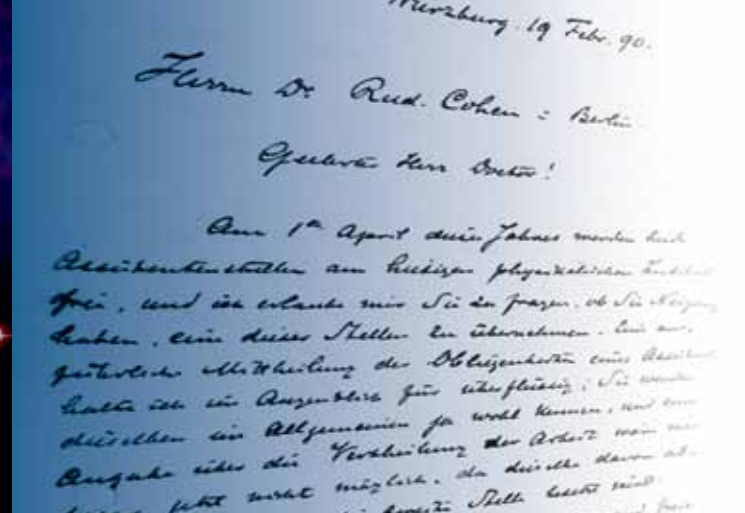 Würzburg. 19 Febr. 90.
Herrn Dr. Rud. Cohen = Berlin
Geehrter Herr Doctor!
Am 1ten April dieses Jahres werden
Assistentenstellen am hiesigen physikalischen Institut
frei, und ich erlaube mir Sie zu fragen, ob Sie Neigung
haben, eine dieser Stellen zu übernehmen. Eine aus-
führliche Mittheilung der Obliegenheiten eines
halte ich im Augenblick für überflüssig; Sie werden
dieselben im Allgemeinen ja wohl kennen, und eine
Angabe über die Vertheilung der Arbeit wäre mir
jetzt nicht möglich, da dieselbe davon ab-
zweite Stelle besetzt wird.